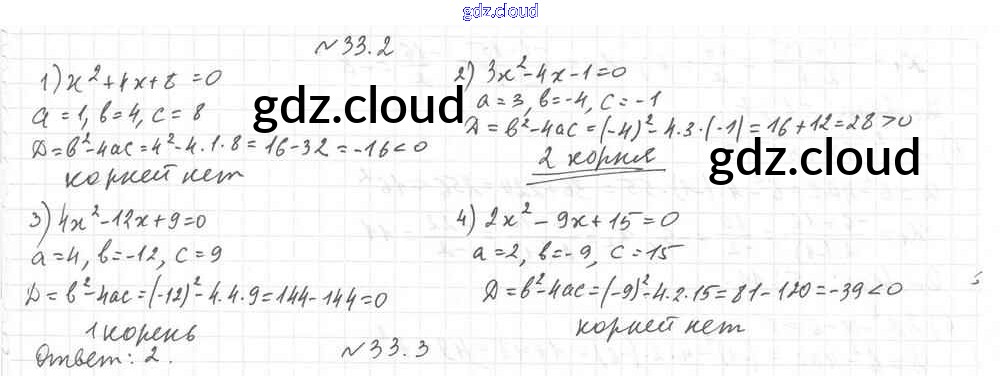 gdz.cloud
№33.2
1) x²+4x+8=0
a=1, b=4, c=8
D=b²-4ac=4²-4.1.8=16-32=-16<0
корней нет
2) 3x²-4x-1=0
a=3, b=-4, c=-1
D=b²-4ac=(-4)²-4.3.(-1)=16+12=28>0
2 корня
gdz.cloud
gdz.cloud
3) 4x²-12x+9=0
a=4, b=-12, c=9
D=b²-4ac=(-12)²-4.4.9=144-144=0
1 корень
Ответ: 2.
4) 2x²-9x+15=0
a=2, b=-9, c=15
D=b²-4ac=(-9)²-4.2.15=81-120=-39<0
корней нет
№33.3